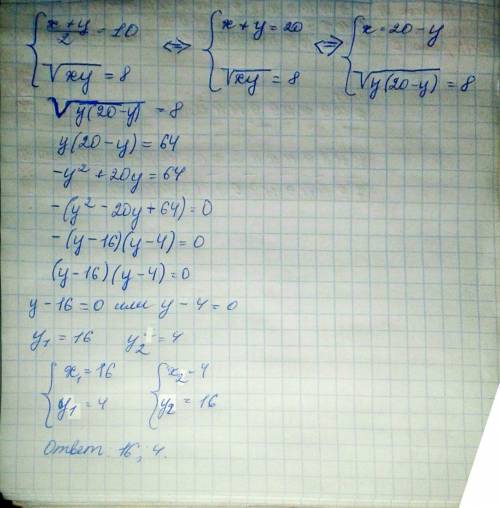 { (x+y)/2 = 10 <=> { x+y = 20 <=> { x = 20-y
{ √(xy) = 8 { √(xy) = 8 { √(y(20-y)) = 8
√(y(20-y)) = 8
y(20-y) = 64
-y² + 20y = 64
-(y² - 20y + 64) = 0
-(y-16)(y-4) = 0
(y-16)(y-4) = 0
y-16 = 0 или y-4 = 0
y₁ = 16 y₂ = 4
{ x₁ = 16 { x₂ - 4
{ y₁ = 4 { y₂ = 16
Ответ 16; 4.